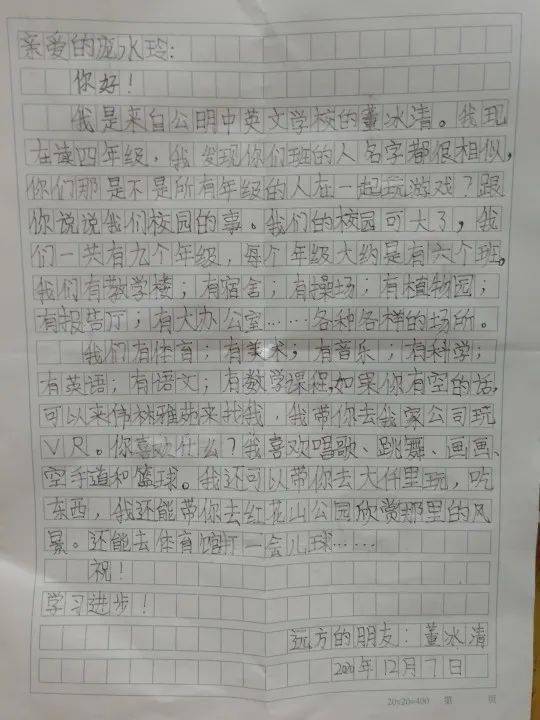 亲爱的庞水玲:
你好!
我是来自公明中英文学校的董冰清。我现
在读四年级，我发现你们班的人名字都很相似，
你们那是不是所有年级的人在一起玩游戏?跟
你说说我们校园的事。我们的校园可大了，我
们一共有九个年级，每个年级大约是有六个班。
我们有教学楼；有宿舍；有操场；有植物园；
有报告厅；有大办公室……各种各样的场所。
我们有体育；有美术；有音乐；有科学；
有英语；有语文；有数学课程,如果你有空的话，
可以来伟林雅苑来找我，我带你去我家公司玩
VR。你喜欢什么?我喜欢唱歌、跳舞、画画、
空手道和篮球。我还可以带你去大仟里玩，吃
东西，我还能带你去红花山公园欣赏那里的风
景。还能去体育馆打一会儿球……
祝!
学习进步!
远方的朋友：董冰清
2020年12月7日
20×20=400 第 页